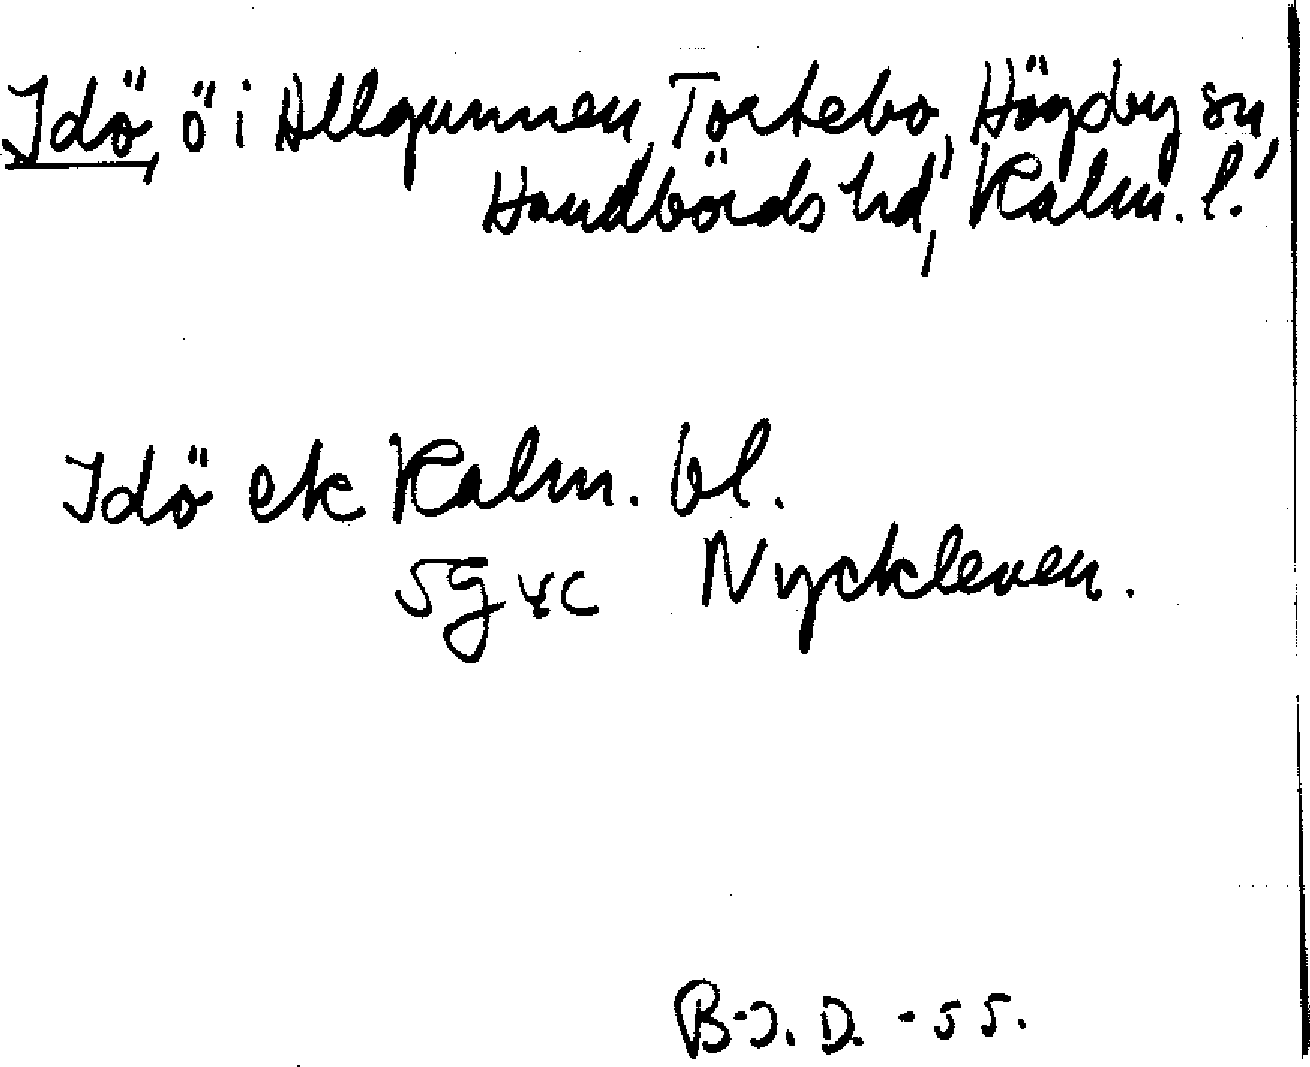 Idö, ö i Allgunnen, Törtebo, Högsby sn,
Handbörds hd, Kalm. l.
Idö ek Kalm. bl.
5g vc Nyckleven.
B-J. D. -55.